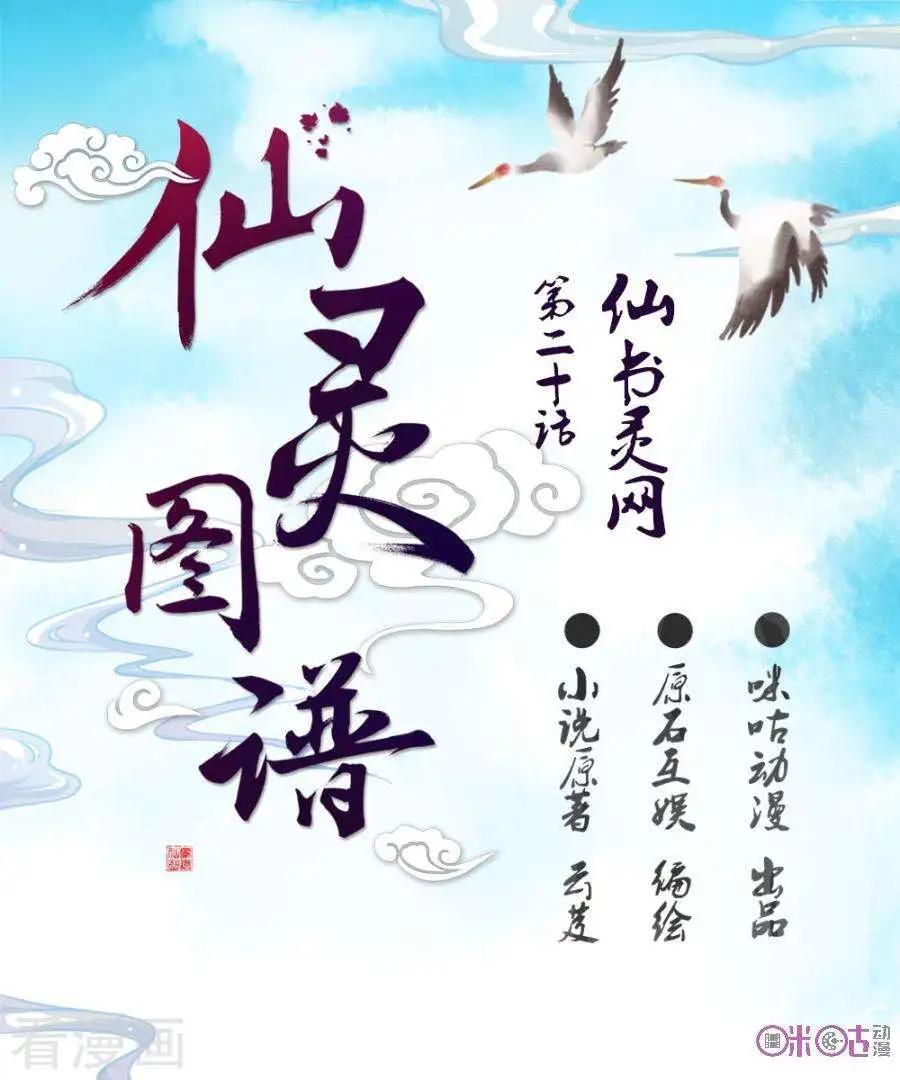 仙灵图谱
仙书灵网
第二十话
咪咕动漫 出品
原石互娱 编绘
小说原著 云芨
看漫画
咪咕动漫